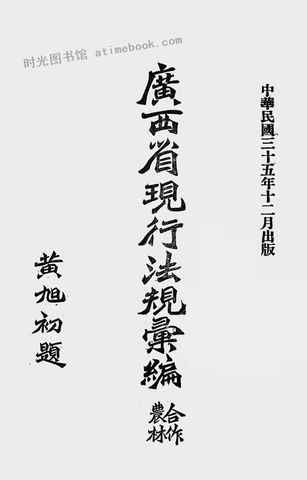 时光图书馆 atimebook.com
中華民國三十五年十二月出版
廣西省現行法規彙編
合作
農林
黃旭初題